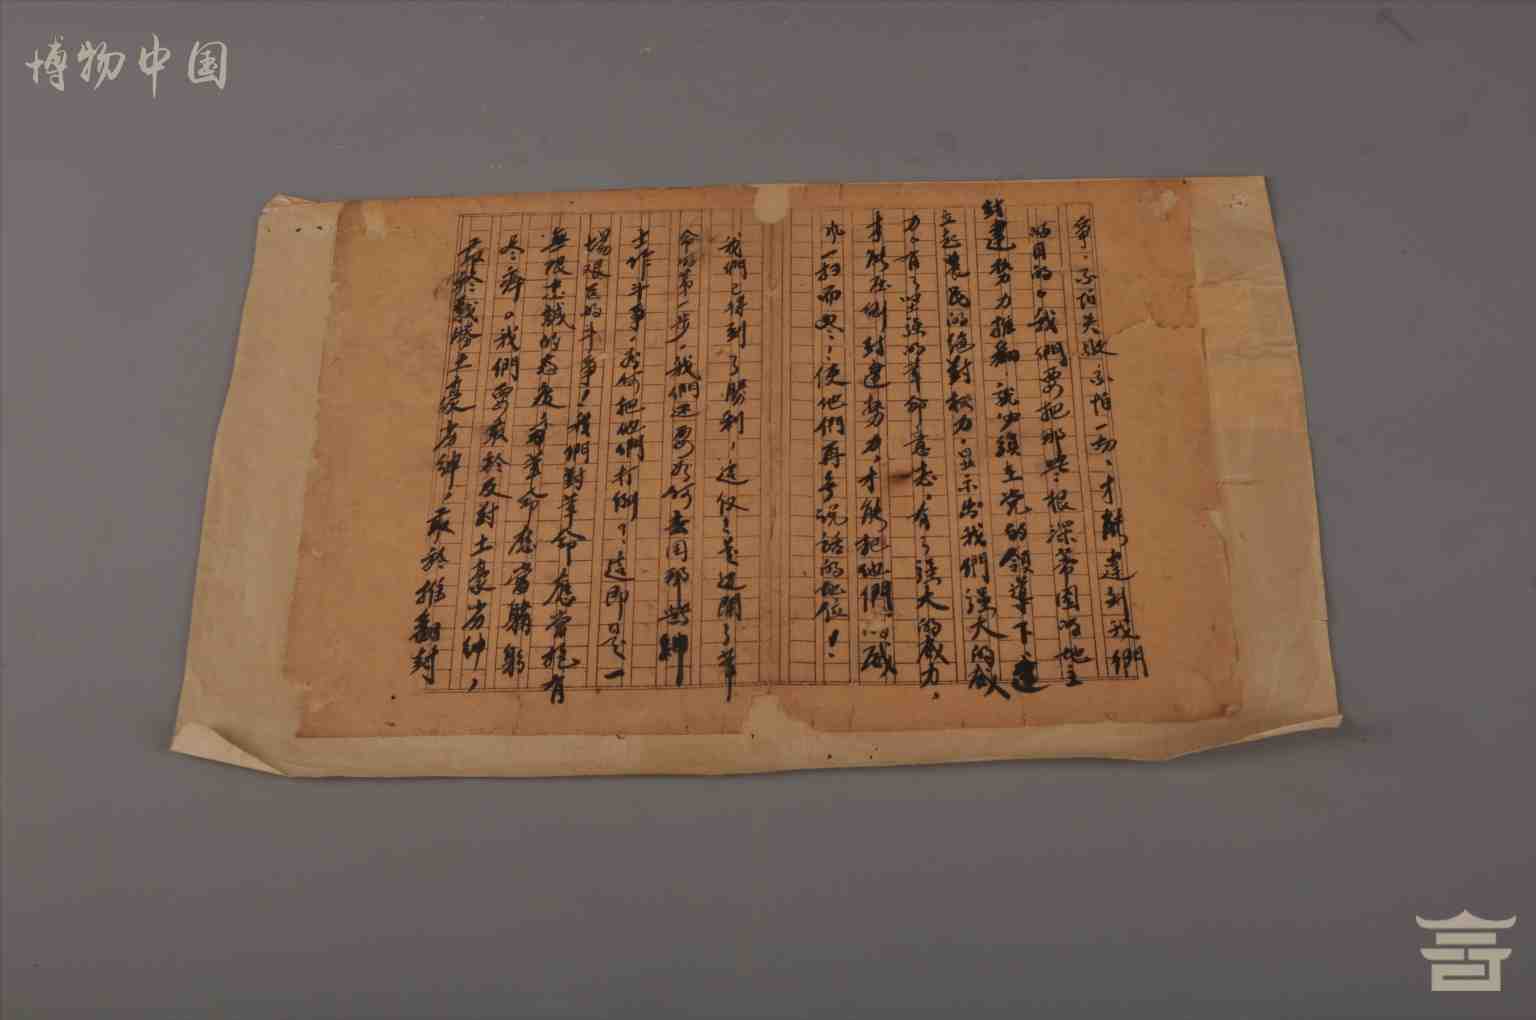 博物中国
爭，不怕失敗不怕一切，才能達到我們
的目的。我們要把那些根深蒂固的地主
封建勢力推翻，就必須在党的領導下建
立起農民的絕對权力，显示出我們强大的威
力，有了坚强的革命意志，有了强大的威力，
才能压倒封建势力，才能把他們的威
風一扫而尽，使他們再无说話的地位！
我們已得到了勝利，这仅々是造開了革
命的第一步，我們还要为何鞏固那些紳
士作斗爭，为何把他們打倒？这即是一
場很長的斗爭！我們對革命應當抱有
無限忠誠的态度，为革命應當鞠躬
尽瘁。我們要敢於反對土豪劣紳，
敢於戰勝土豪劣紳，敢於推翻封